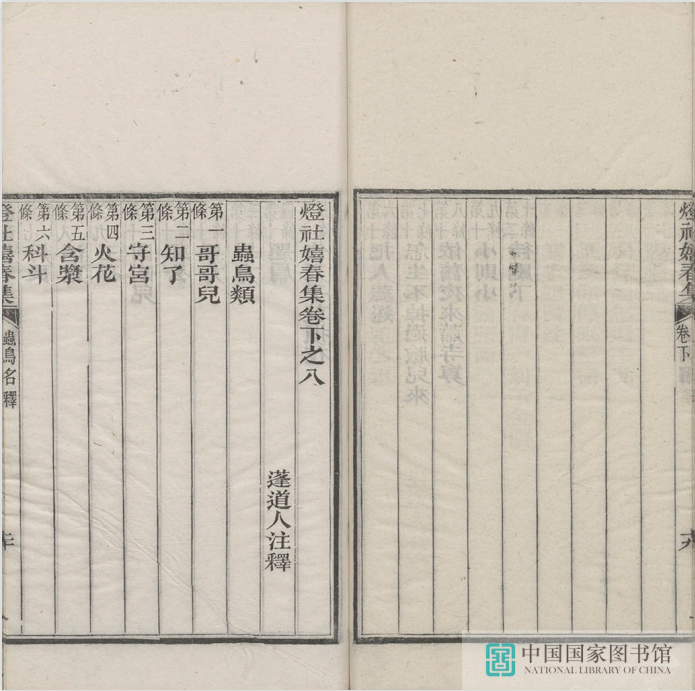 燈社嬉春集
卷下
燈社嬉春集卷下之八
蘧道人注釋
蟲鳥類
第一條 哥哥兒
第二條 知了
第三條 守宮
第四條 火花
第五條 含漿
第六條 科斗
燈社嬉春集
蟲鳥名釋
中国国家图书馆
NATIONAL LIBRARY OF CHINA